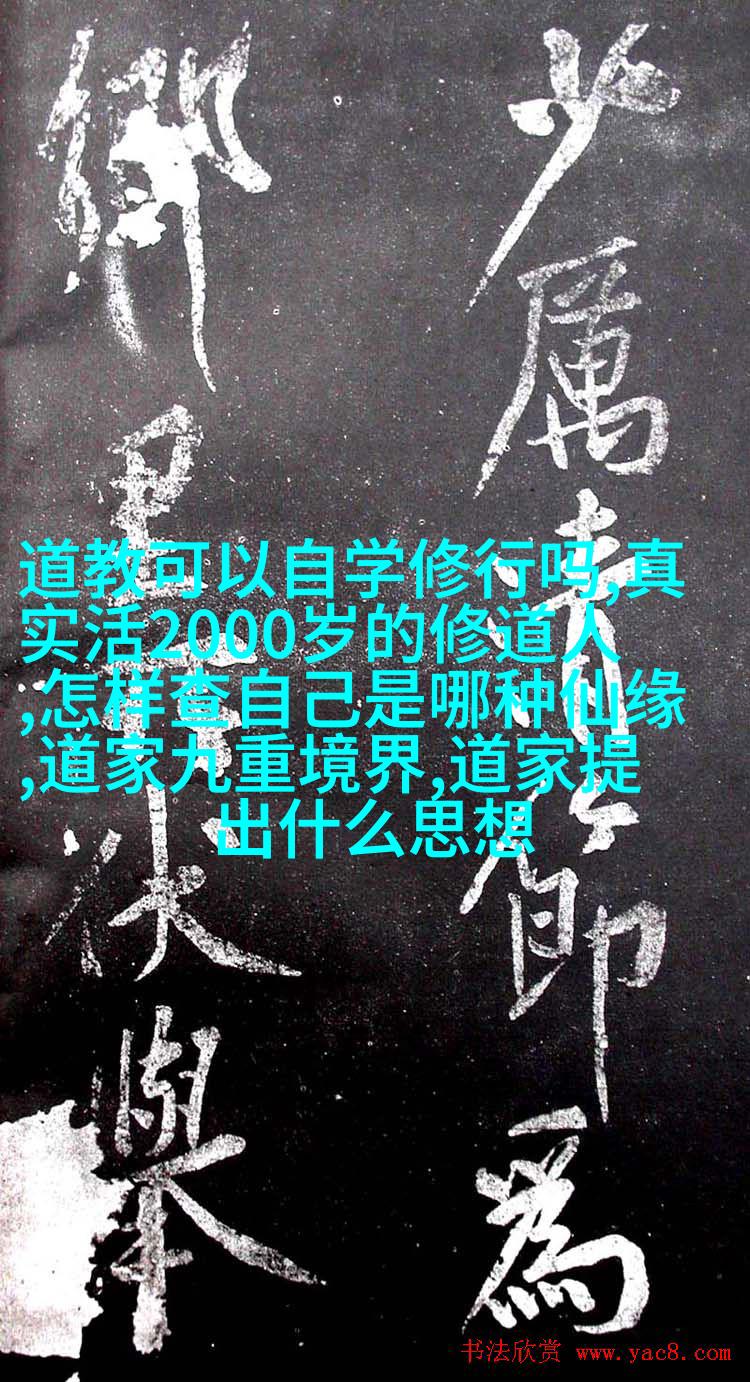 少厲清節為
鄉里伏舉
道教可以自学修行吗,真
实活2000岁的修道人
,怎样查自己是哪种仙缘
,道家九重境界,道家提
出什么思想
书法欣赏 www.yac8.com